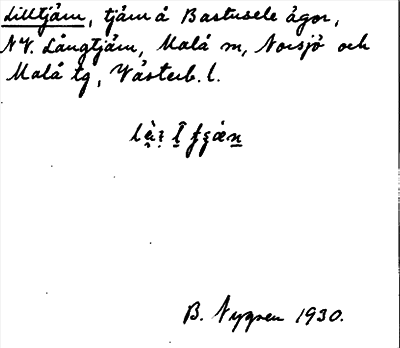 Lilltjärn, tjärn å Bastusele ägor,
NV. Långtjärn, Malå sn, Norsjö och
Malå tg, Västerb. l.
B. Nygren 1930.